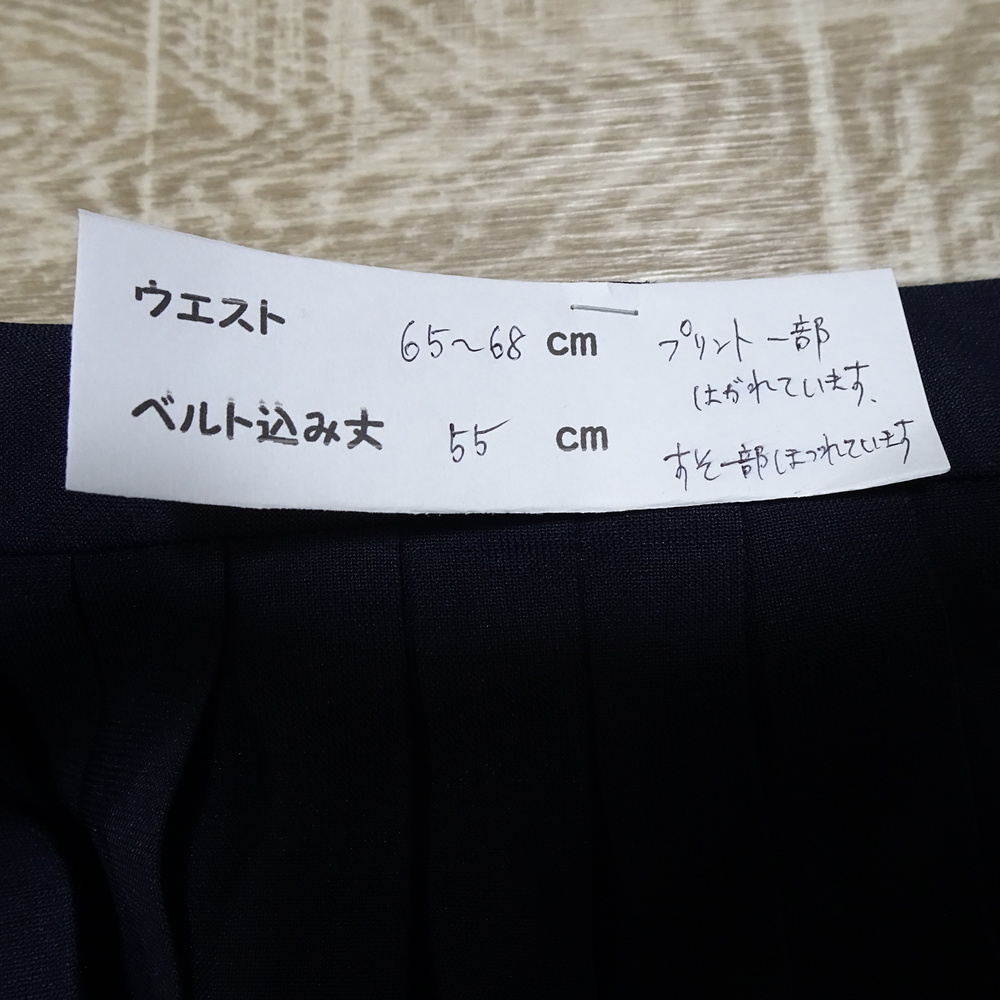 ウエスト 65〜68 cm
ベルト込み丈 55 cm
プリント一部
はがれています、
すそ一部ほつれています